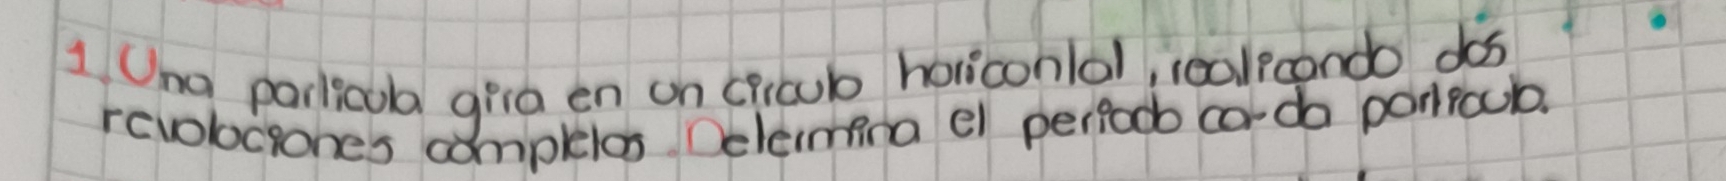 1. Una particula gira en un circulo horiconlal, realicando dos
revoluciones completas. Determina el periodo ca-da particula.